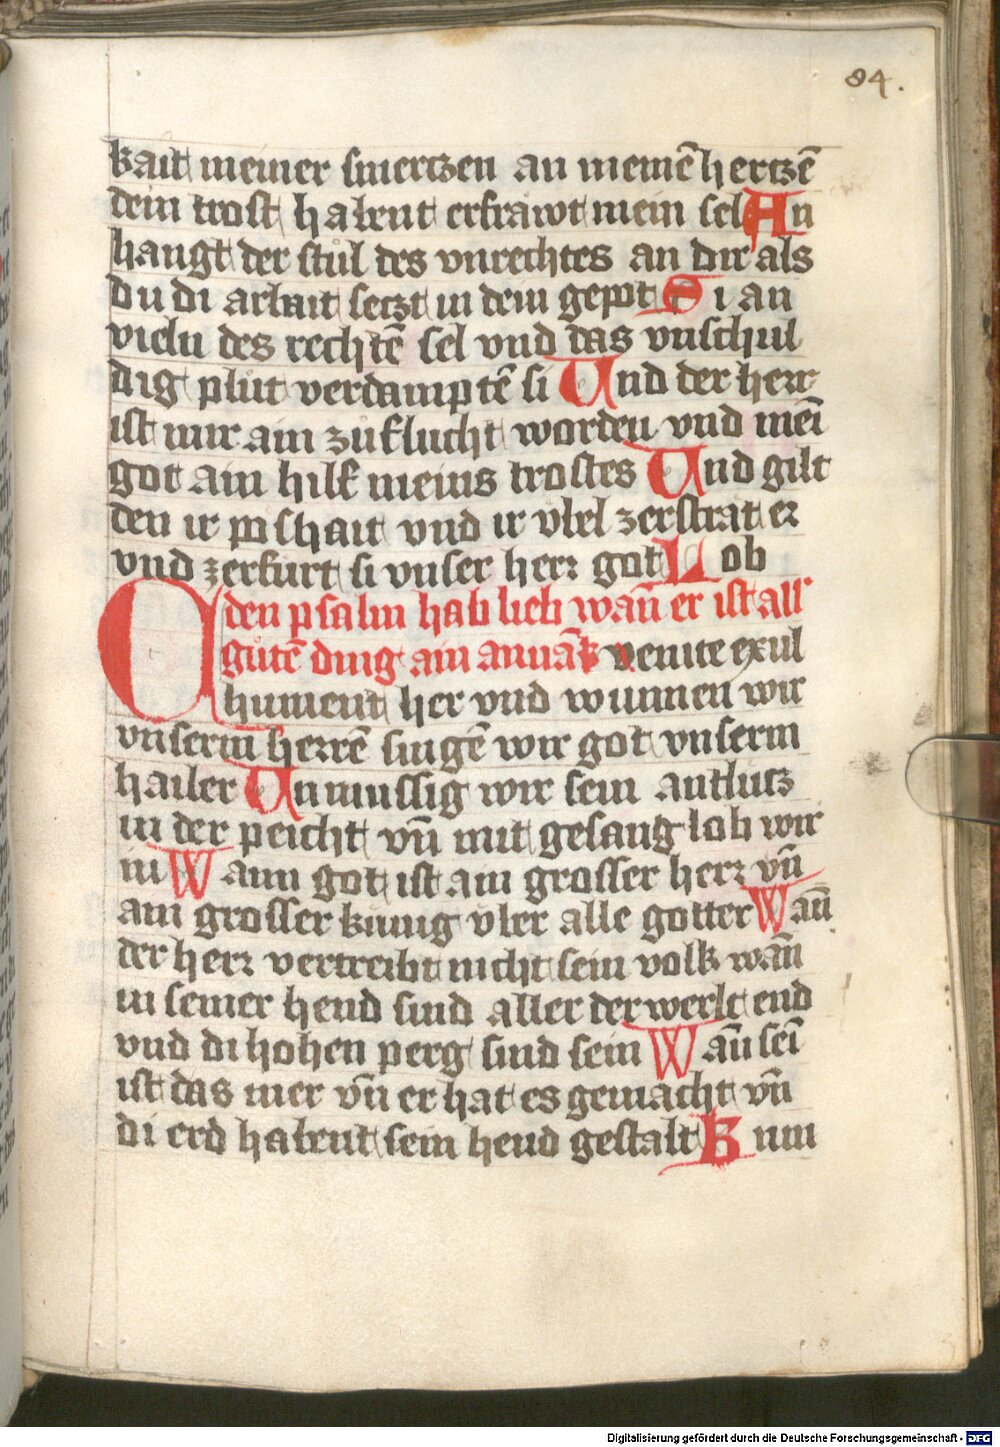 84.
kait meiner smertzen an meinē hertzē
dein trost habent erfrawt mein sel An
hangt der stůl des vnrechtes an dir als
du di arbait setzt in dein gepot Si an
vieln des rechtē sel vnd das vnschul
dig plůt verdamptē si Und der herr
ist mir ain zůflucht worden vnd meī
got ain hilf meins trostes Und gilt
den ir poschait vnd ir vbel zerstrat er
vnd zerfurt si vnser herr got Lob
den psalm hab lieb wañ er ist all
gůtē ding ain anuāk venite exul
Chument her vnd wunnen wir
vnserm herrē singē wir got vnserm
hailer Unmussig wir sein antlutz
in der peicht vñ mit gesang lob wir
in Wann got ist ain grosser herr vñ
ain grosser kunig vber alle gotter Wañ
der herr vertreibt nicht sein volk wañ
in seiner hend sind aller der werlt end
vnd di hohen perg sind sein Wañ seī
ist das mer vñ er hat es gemacht vñ
di erd habent sein hend gestalt Kum
Digitalisierung gefördert durch die Deutsche Forschungsgemeinschaft - DFG